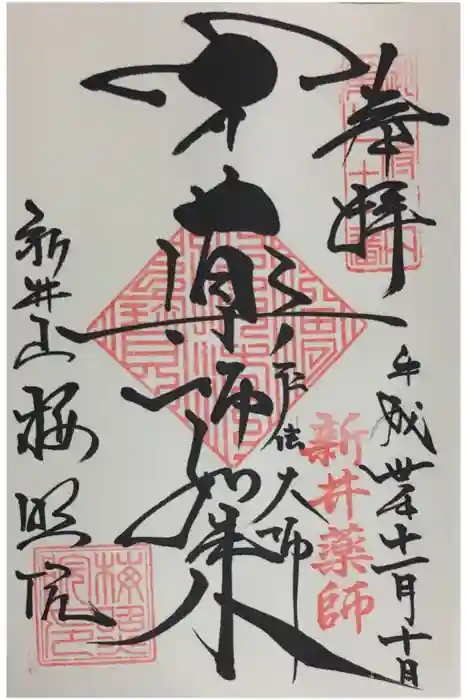 奉拝
平成卅年十一月十日
新井薬師
薬師如来
弘法大師
新井山 梅照院